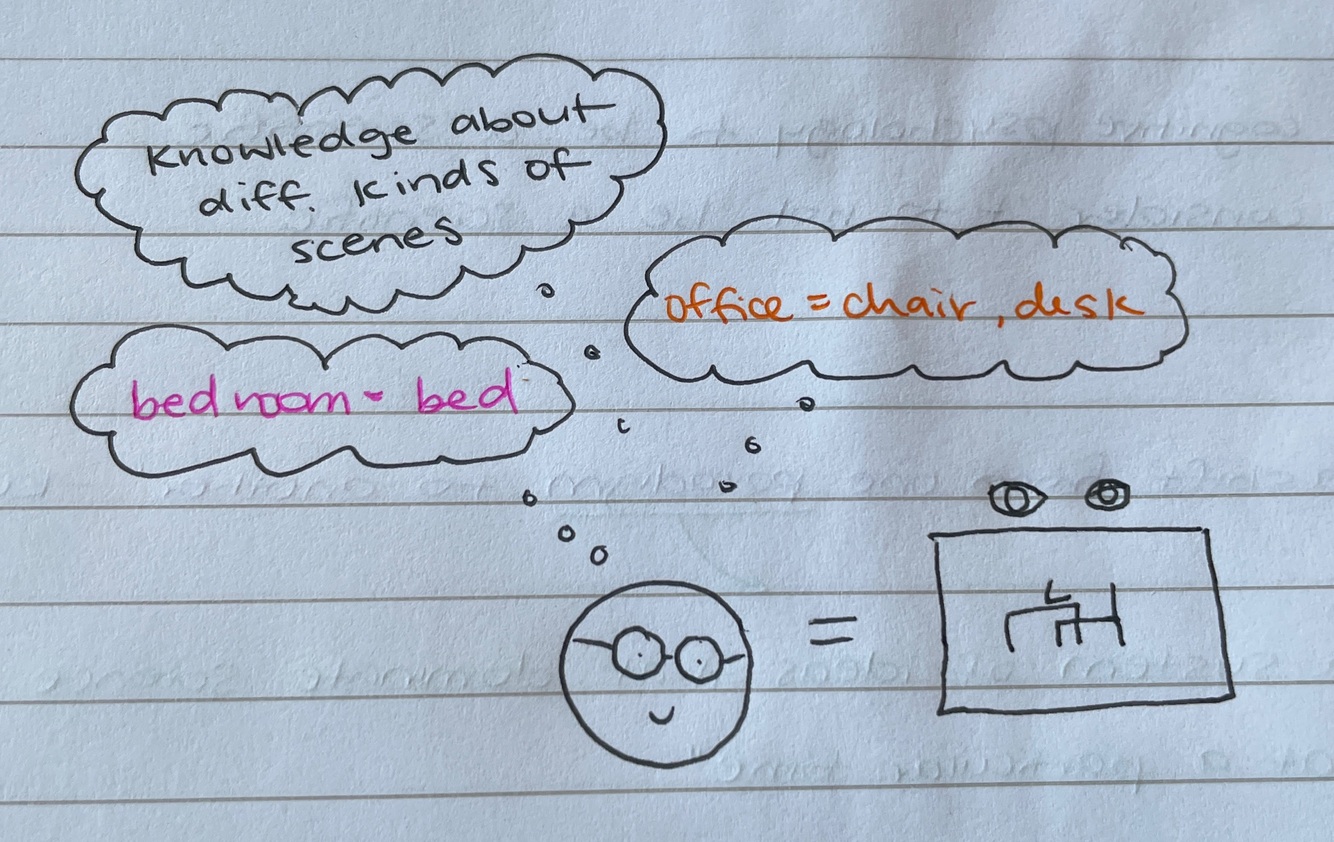 Knowledge about
diff. kinds of
scenes
office = chair, desk
bedroom = bed
=